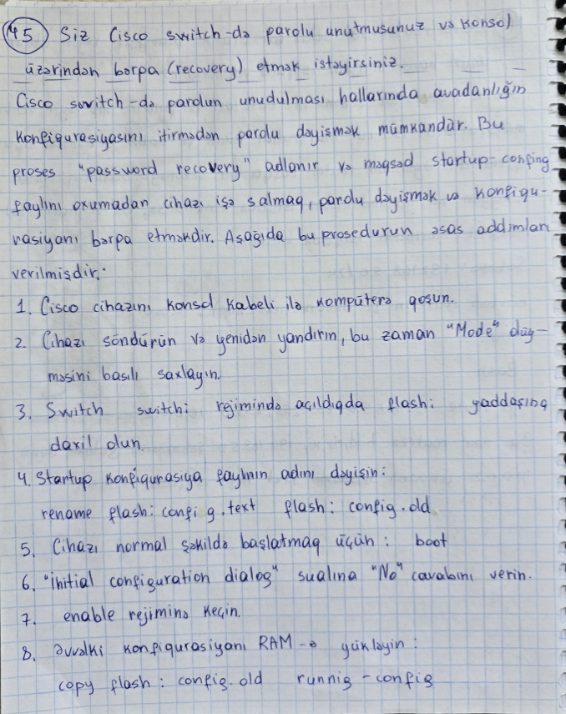 45 Siz Cisco switch-də parolu unutmusunuz və konsol
üzərindən bərpa (recovery) etmək istəyirsiniz.
Cisco switch-də parolun unudulması hallarında avadanlığın
konfiqurasiyasını itirmədən parolu dəyişmək mümkündür. Bu
proses "password recovery" adlanır və məqsəd startup-conping
faylını oxumadan cihazı işə salmaq, parolu dəyişmək və konfiqu-
rasiyanı bərpa etməkdir. Aşağıda bu prosedurun əsas addımları
verilmişdir:
1. Cisco cihazını konsol kabeli ilə kompüterə qoşun.
2. Cihazı söndürün və yenidən yandırın, bu zaman "Mode" düy-
məsini basılı saxlayın.
3. Switch switch: rejimində açıldıqda flash: yaddaşına
daxil olun.
4. Startup konfiqurasiya faylının adını dəyişin:
rename flash: config.text flash: config.old
5. Cihazı normal şəkildə başlatmaq üçün: boot
6. "initial configuration dialog" sualına "No" cavabını verin.
7. enable rejiminə keçin.
8. Əvvəlki konfiqurasiyanı RAM-ə yükləyin:
copy flash: config.old runnig-config